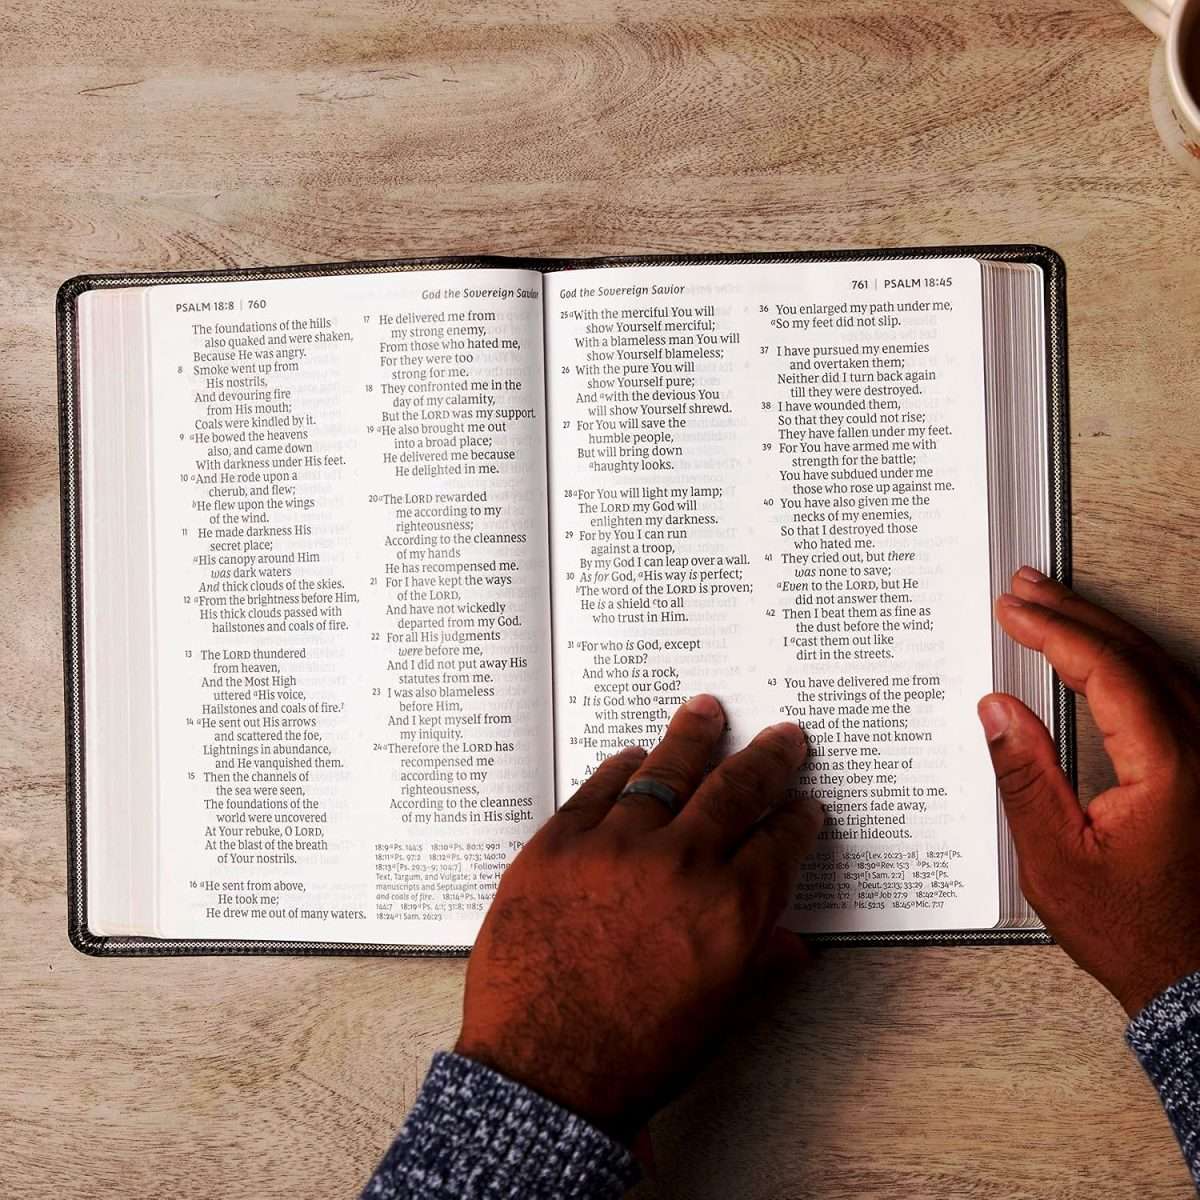 PSALM 18:8 | 760
God the Sovereign Savior
The foundations of the hills
also quaked and were shaken,
Because He was angry.
8 Smoke went up from
His nostrils,
And devouring fire
from His mouth;
Coals were kindled by it.
9 aHe bowed the heavens
also, and came down
With darkness under His feet.
10 aAnd He rode upon a
cherub, and flew;
bHe flew upon the wings
of the wind.
11 He made darkness His
secret place;
aHis canopy around Him
was dark waters
And thick clouds of the skies.
12 aFrom the brightness before Him,
His thick clouds passed with
hailstones and coals of fire.
13 The LORD thundered
from heaven,
And the Most High
uttered aHis voice,
Hailstones and coals of fire.
14 aHe sent out His arrows
and scattered the foe,
Lightnings in abundance,
and He vanquished them.
15 Then the channels of
the sea were seen,
The foundations of the
world were uncovered
At Your rebuke, O LORD,
At the blast of the breath
of Your nostrils.
16 aHe sent from above,
He took me;
He drew me out of many waters.
17 He delivered me from
my strong enemy,
From those who hated me,
For they were too
strong for me.
18 They confronted me in the
day of my calamity,
But the LORD was my support.
19 aHe also brought me out
into a broad place;
He delivered me because
He delighted in me.
20 aThe LORD rewarded
me according to my
righteousness;
According to the cleanness
of my hands
He has recompensed me.
21 For I have kept the ways
of the LORD,
And have not wickedly
departed from my God.
22 For all His judgments
were before me,
And I did not put away His
statutes from me.
23 I was also blameless
before Him,
And I kept myself from
my iniquity.
24 aTherefore the LORD has
recompensed me
according to my
righteousness,
According to the cleanness
of my hands in His sight.
18:9 a Ps. 144:5 18:10 a Ps. 80:1; 99:1
18:11 a Ps. 97:2 18:12 a Ps. 97:3; 140:10
18:13 a [Ps. 29:3–9; 104:7] Following
Text, Targum, and Vulgate; a few
manuscripts and Septuagint omit
and coals of fire. 18:14 a Ps.
144:7 18:19 a Ps. 4:1; 31:8; 118:5
18:24 a 1 Sam. 26:23
God the Sovereign Savior
761 | PSALM 18:45
25 aWith the merciful You will
show Yourself merciful;
With a blameless man You will
show Yourself blameless;
26 With the pure You will
show Yourself pure;
And awith the devious You
will show Yourself shrewd.
27 For You will save the
humble people,
But will bring down
ahaughty looks.
28 aFor You will light my lamp;
The LORD my God will
enlighten my darkness.
29 For by You I can run
against a troop,
By my God I can leap over a wall.
30 As for God, aHis way is perfect;
bThe word of the LORD is proven;
He is a shield cto all
who trust in Him.
31 aFor who is God, except
the LORD?
And who is a rock,
except our God?
32 It is God who aarms
with strength,
And makes my
33 aHe makes my
the
34
36 You enlarged my path under me,
aSo my feet did not slip.
37 I have pursued my enemies
and overtaken them;
Neither did I turn back again
till they were destroyed.
38 I have wounded them,
So that they could not rise;
They have fallen under my feet.
39 For You have armed me with
strength for the battle;
You have subdued under me
those who rose up against me.
40 You have also given me the
necks of my enemies,
So that I destroyed those
who hated me.
41 They cried out, but there
was none to save;
aEven to the LORD, but He
did not answer them.
42 Then I beat them as fine as
the dust before the wind;
I acast them out like
dirt in the streets.
43 You have delivered me from
the strivings of the people;
aYou have made me the
head of the nations;
I have not known
serve me.
soon as they hear of
me they obey me;
The foreigners submit to me.
fade away,
frightened
their hideouts.
18:26 a [Lev. 26:23–28] 18:27 a [Ps.
18:30 a Rev. 15:3 b Ps. 12:6;
18:31 a [1 Sam. 2:2] 18:32 a [Ps.
b Deut. 32:13; 33:29 18:34 a Ps.
18:41 a Job 27:9 18:42 a Zech.
b Is. 52:15 18:45 a Mic. 7:17